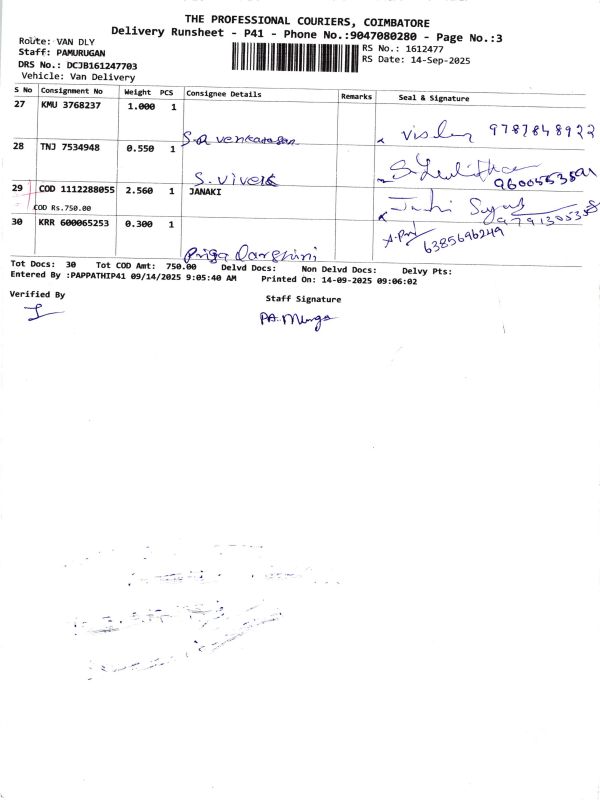 THE PROFESSIONAL COURIERS, COIMBATORE
Delivery Runsheet - P41 - Phone No.:9047080280 - Page No.:3
Route: VAN DLY
Staff: PAMURUGAN
DRS No.: DCJB161247703
Vehicle: Van Delivery
RS No.: 1612477
RS Date: 14-Sep-2025
S No Consignment No Weight PCS Consignee Details Remarks Seal & Signature
27 KMU 3768237 1.000 1
S.R venkatasan 9787848922
28 TNJ 7534948 0.550 1
S. vivek 9600553591
29 COD 1112288055 2.560 1 JANAKI
COD Rs.750.00
30 KRR 600065253 0.300 1 6385696249
Priya Darshini
Tot Docs: 30 Tot COD Amt: 750.00 Delvd Docs: Non Delvd Docs: Delvy Pts:
Entered By :PAPPATHIP41 09/14/2025 9:05:40 AM Printed On: 14-09-2025 09:06:02
Verified By
Staff Signature